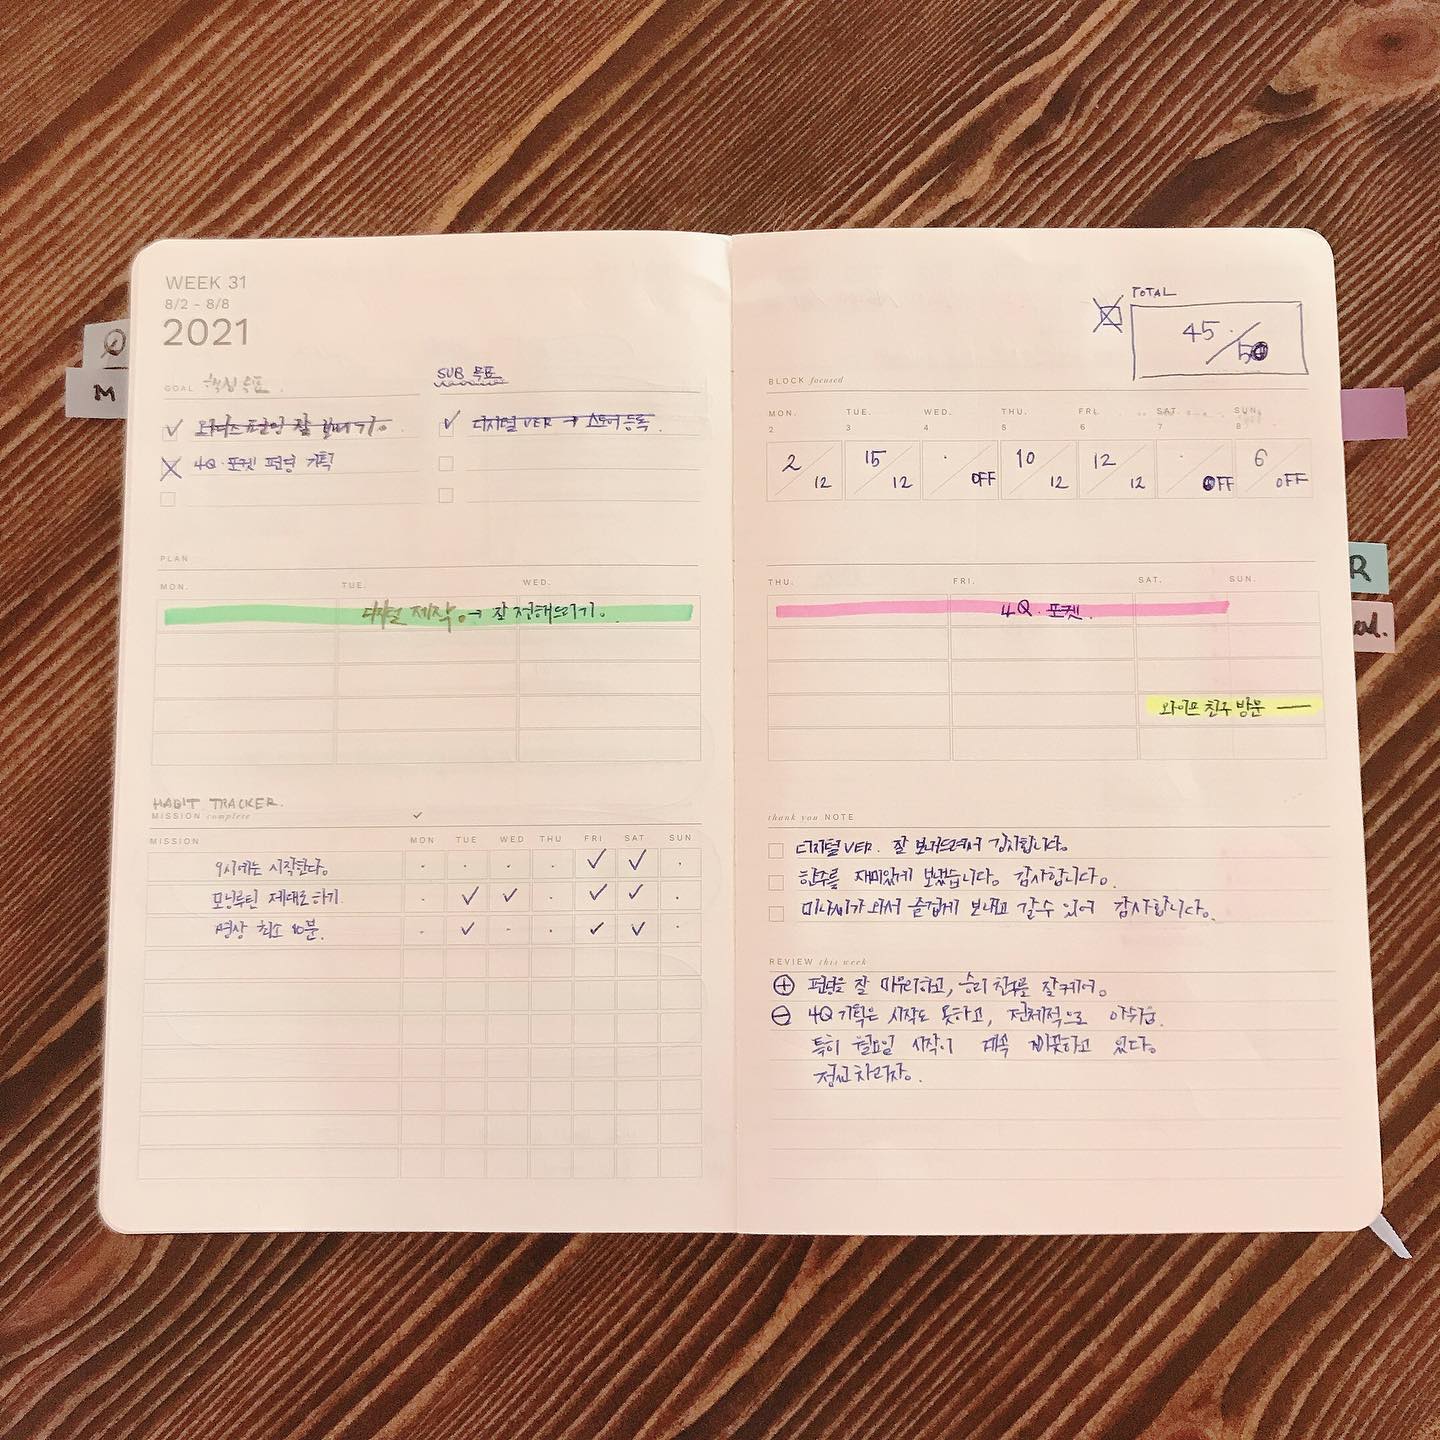 WEEK 31
8/2 - 8/8
2021
GOAL 핵심 목표.
와디즈 펀딩 잘 보내기。
4Q·포켓 펀딩 기획
SUB 목표
디지털 VER → 스토어 등록.
PLAN
MON. TUE. WED.
디지털 제작。→ 잘 전해드리기。
HABIT TRACKER.
MISSION complete
MISSION MON TUE WED THU FRI SAT SUN
9시에는 시작한다。
모닝루틴 제대로 하기
명상 최소 10분.
TOTAL
45/50
BLOCK focused
MON. TUE. WED. THU. FRI. SAT. SUN.
2 3 4 5 6 7 8
2/12 15/12 ·/OFF 10/12 12/12 ·/OFF 6/OFF
THU. FRI. SAT. SUN.
4Q·포켓.
와이프 친구 방문 —
thank you NOTE
디지털 VER. 잘 보내드려서 감사합니다。
하루를 재미있게 보냈습니다。 감사합니다。
와서 즐겁게 보내고 갈 수 있어 감사합니다。
REVIEW this week
⊕ 펀딩을 잘 마무리하고, 승리 친구를
⊖ 4Q 기획은 시작도 못하고, 전체적으로 아쉬움.
특히 월요일 시작이 계속 삐끗하고 있다。
정신차리자。
M
R
al.